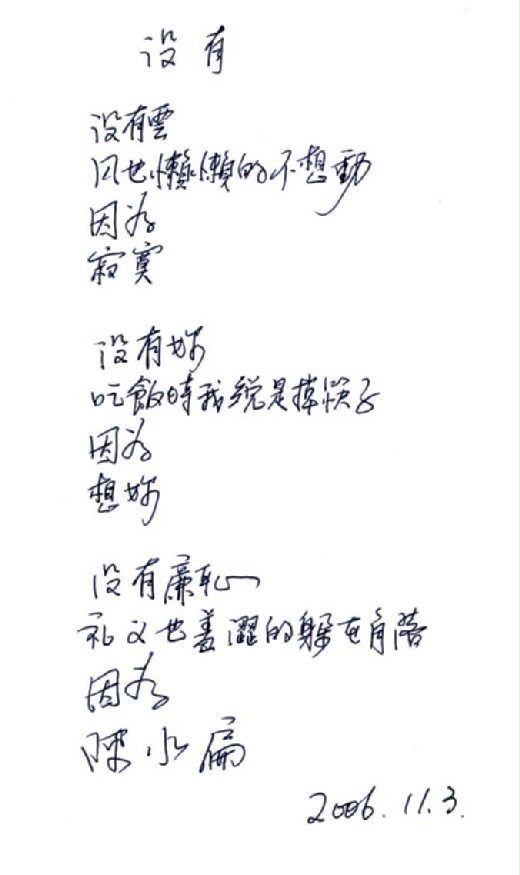 没有
没有雲
风也懶懶的不想動
因为
寂寞
没有妳
吃飯時我總是掉筷子
因为
想妳
没有廉恥
礼义也羞澀的躲在角落
因为
陳水扁
2006.11.3.